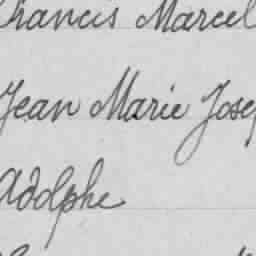 Francis Marcel
Jean Marie Josep
Adolphe